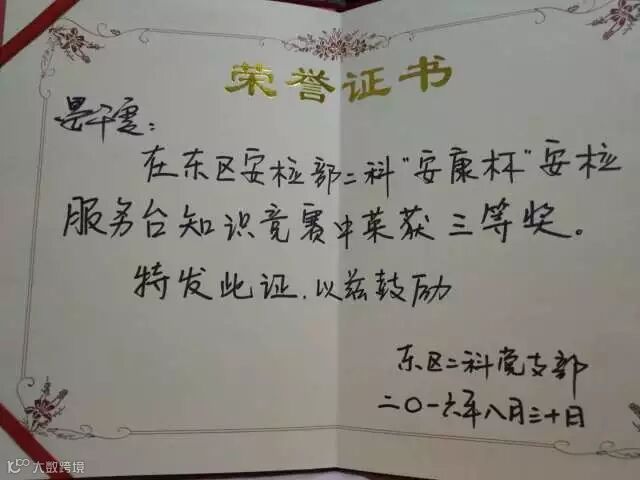 荣誉证书
晏千雯：
在东区安检部二科“安康杯”安检
服务台知识竞赛中荣获三等奖。
特发此证，以兹鼓励
东区二科党支部
二〇一六年八月三十日
大数跨境